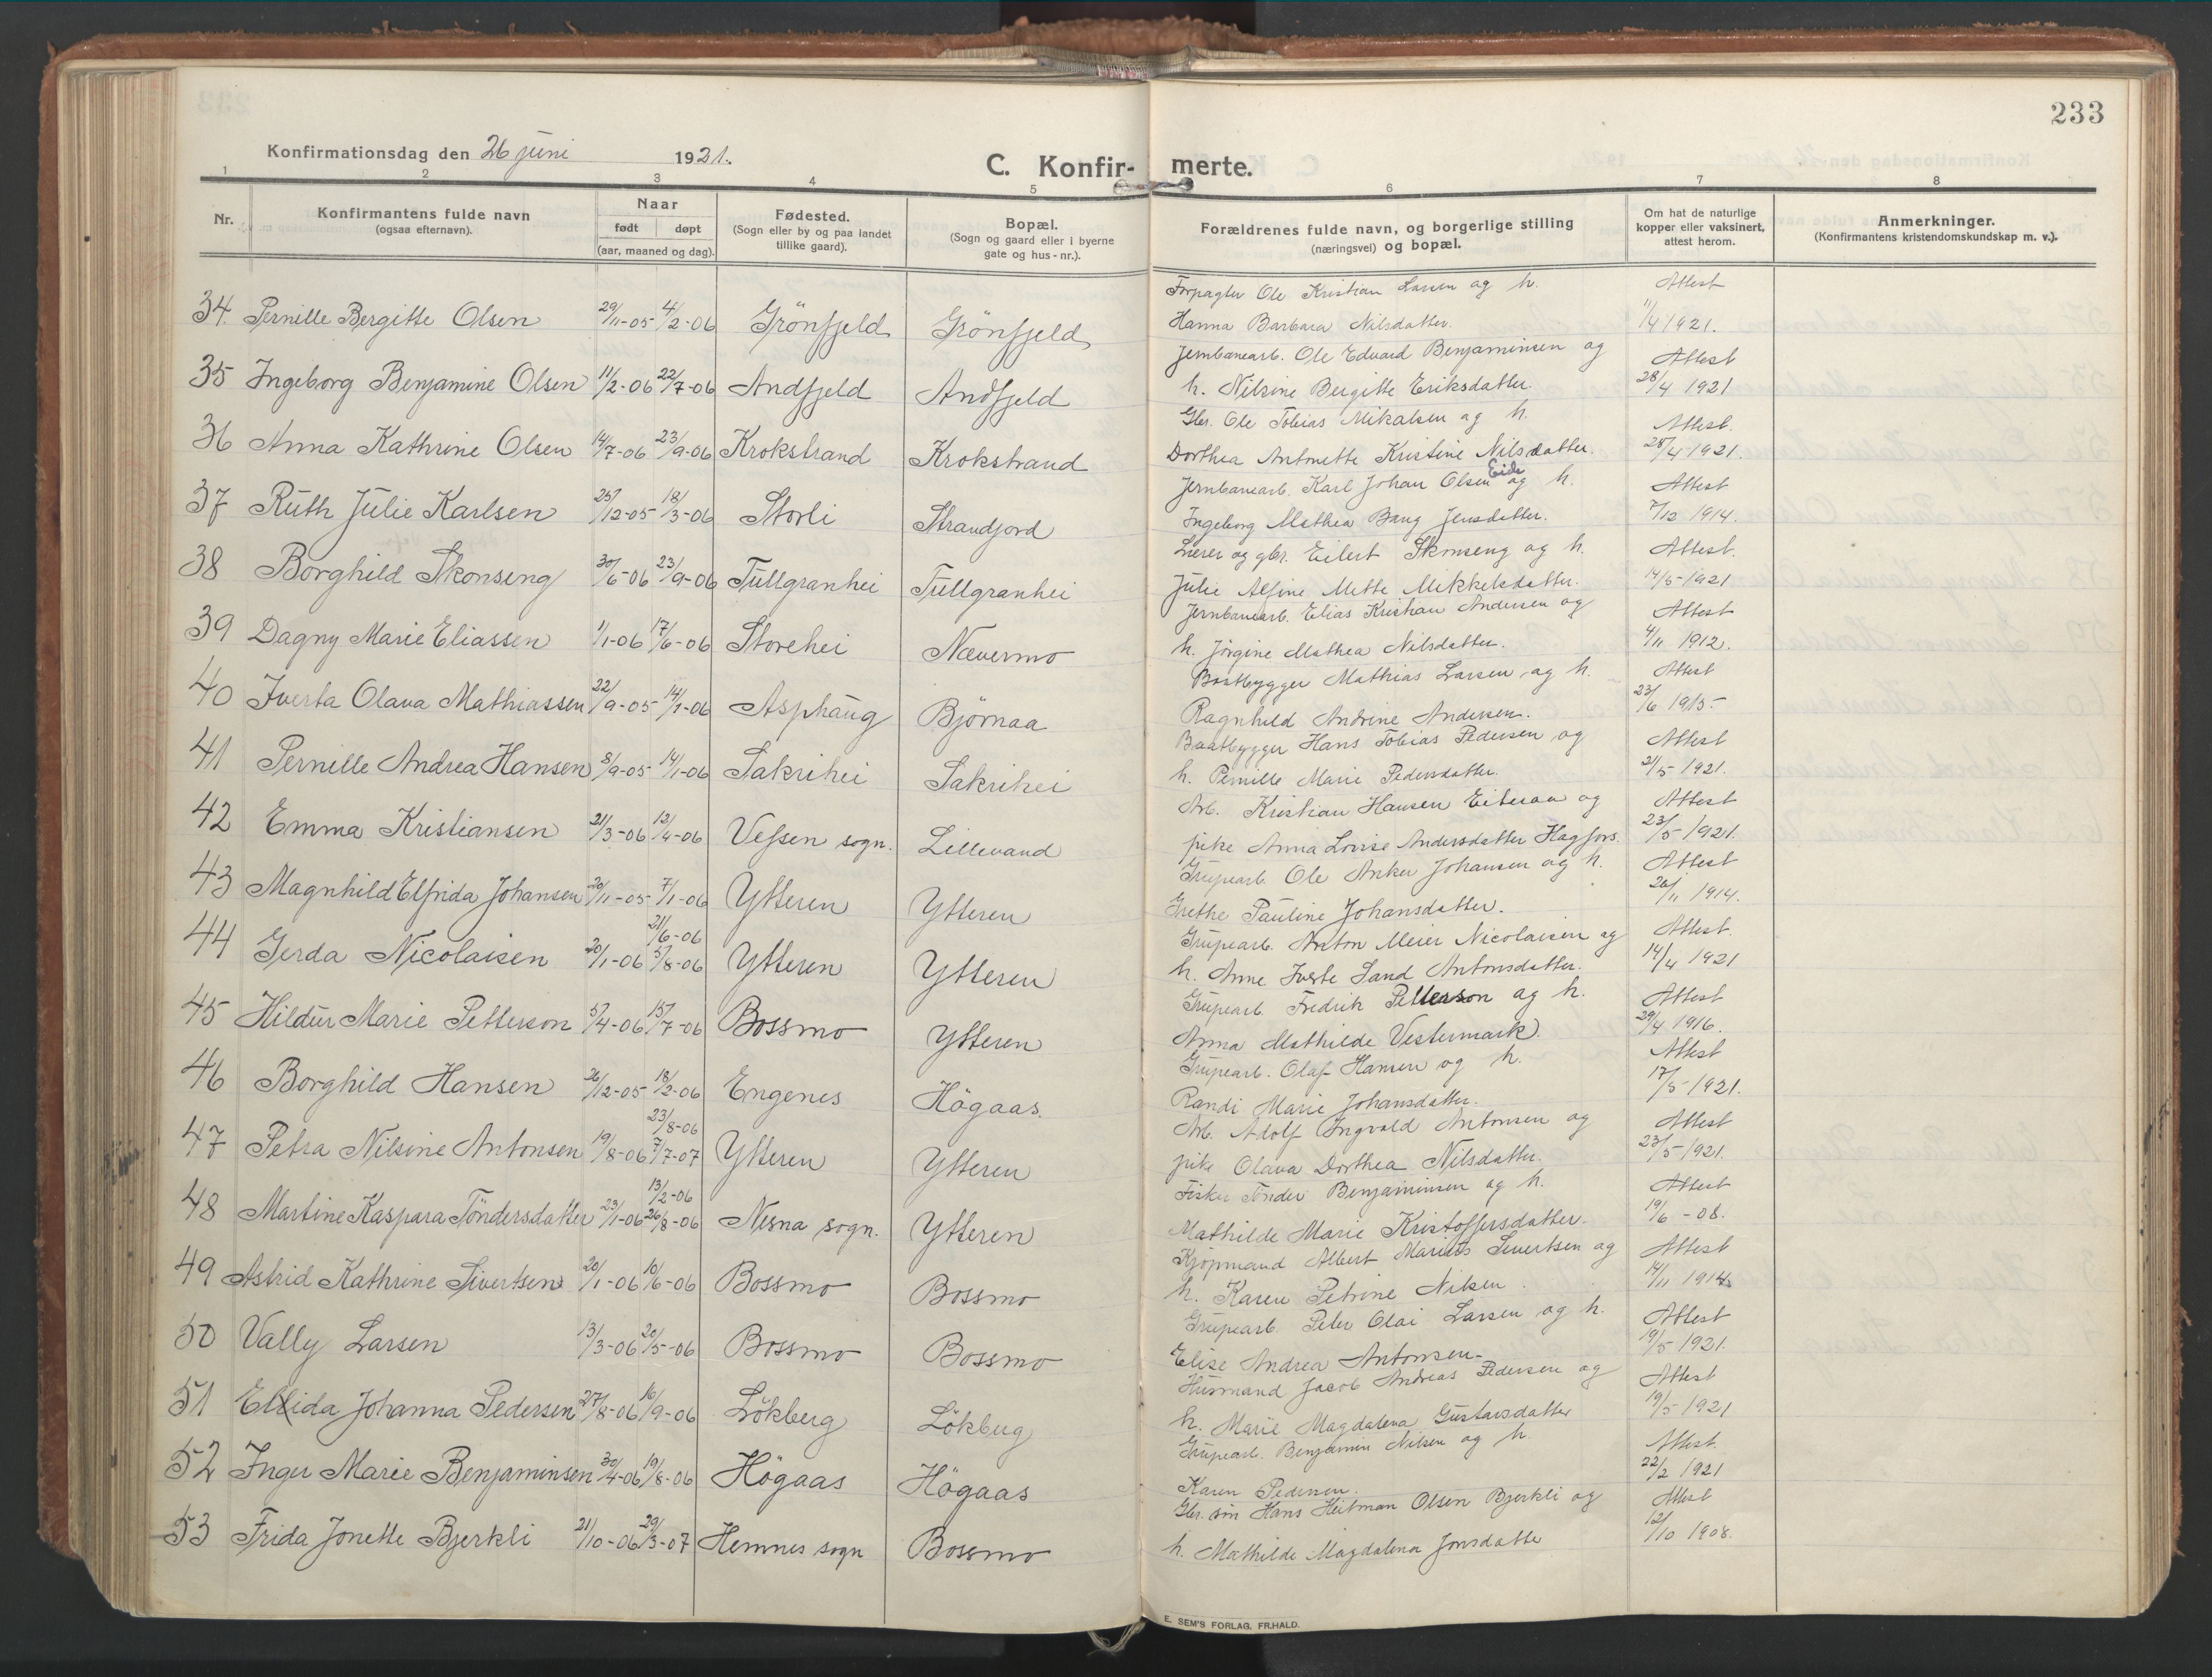 233
Konfirmationsdag den 26 juni 1921.
C. Konfir- merte.
1 2 3 4 5 6 7 8
Nr.
Konfirmantens fulde navn
(ogsaa efternavn).
Naar
født døpt
(aar, maaned og dag).
Fødested.
(Sogn eller by og paa landet
tillike gaard).
Bopæl.
(Sogn og gaard eller i byerne
gate og hus-nr.).
Forældrenes fulde navn, og borgerlige stilling
(næringsvei) og bopæl.
Om hat de naturlige
kopper eller vaksinert,
attest herom.
Anmerkninger.
(Konfirmantens kristendomskundskap m. v.).
34. Pernille Bergitte Olsen 29/11-05 4/2-06 Grönfjeld Grönfjeld
Forpagter Ole Kristian Larsen og h. Attest
Hanna Barbara Nilsdatter. 11/4 1921.
35 Ingeborg Benjamine Olsen 11/2-06 22/7-06 Andfjeld Andfjeld
Jernbanearb. Ole Edvard Benjaminsen og Attest
h. Nilsine Bergitte Eriksdatter. 28/4 1921
36 Anna Kathrine Olsen 14/7-06 23/9-06 Krokstrand Krokstrand
Gbr. Ole Tobias Mikalsen og h. Attest.
Dorthea Antonette Kristine Nilsdatter. 28/4 1921.
37 Ruth Julie Karlsen 25/12-05 18/3-06 Storli Strandjord
Jernbanearb. Karl Johan Olsen Eide og h. Attest
Ingeborg Mathea Bang Jensdatter. 7/12 1914.
38 Borghild Skonseng 30/6-06 23/9-06 Tullgranhei Tullgranhei
Lærer og gbr. Eilert Skonseng og h. Attest.
Julie Alfine Mette Mikkelsdatter. 14/5-1921
39 Dagny Marie Eliassen 1/1-06 17/6-06 Storehei Nævermo
Jernbanearb. Elias Kristian Andersen og Attest
h. Jörgine Mathea Nilsdatter. 4/11 1912.
40 Iverta Olava Mathiassen 22/9-05 14/1-06 Asphaug Björnaa
Baatbygger Mathias Larsen og h. Attest
Ragnhild Andrine Andersen. 23/6 1915.
41 Pernille Andrea Hansen 8/9-05 14/1-06 Sakrihei Sakrihei
Baatbygger Hans Tobias Pedersen og Attest
h. Pernille Marie Pedersdatter. 21/5 1921.
42 Emma Kristiansen 21/3-06 12/4-06 Vefsen sogn. Lillevand
Arb. Kristian Hansen Eiteraa og Attest
pike Anna Lovise Andersdatter Hagfors. 23/5-1921.
43 Magnhild Elfrida Johansen 20/11-05 7/1-06 Ytteren Ytteren
Grupearb. Ole Anker Johansen og h. Attest
Grethe Pauline Johansdatter. 26/11 1914.
44 Gerda Nicolaisen 20/1-06 21/6-06 5/8-06 Ytteren Ytteren
Grupearb. Anton Meier Nicolaisen og Attest.
h. Anne Iverte Sand Antonsdatter. 14/4 1921
45 Hildur Marie Petterson 5/4-06 15/7-06 Bossmo Ytteren
Grupearb. Fredrik Petterson og h. Attest
Anna Mathilde Vestermark. 29/4 1916.
46 Borghild Hansen 26/12-05 18/2-06 Engenes Högaas.
Grupearb. Olaf Hansen og h. Attest
Randi Marie Johansdatter. 17/5-1921.
47 Petra Nilsine Antonsen 19/8-06 23/8-06 7/7-07 Ytteren Ytteren
Arb. Adolf Ingvald Antonsen og Attest
pike Olava Dorthea Nilsdatter. 23/5-1921.
48 Martine Kaspara Töndersdatter 23/1-06 13/2-06 26/8-06 Nesna sogn. Ytteren
Fisker Tönder Benjaminsen og h. Attest
Mathilde Marie Kristoffersdatter. 19/6-08.
49 Astrid Kathrine Sivertsen 20/1-06 10/6-06 Bossmo Bossmo
Kjøpmand Albert Marius Sivertsen og Attest
h. Karen Petrine Nilsen. 14/11 1914
50 Vally Larsen 13/3-06 20/5-06 Bossmo Bossmo
Grupearb. Peter Olai Larsen og h. Attest
Elise Andrea Antonsen. 19/5-1921.
51 Ellida Johanna Pedersen 27/8-06 16/9-06 Lökberg Lökberg
Husmand Jacob Andreas Pedersen og Attest
h. Marie Magdalena Gustavsdatter 19/5-1921
52 Inger Marie Benjaminsen 30/4-06 19/8-06 Högaas Högaas
Grupearb. Benjamin Nilsen og h. Attest.
Karen Pedersen. 22/2 1921
53 Frida Jonette Bjerkli 21/10-06 29/3-07 Hemnes sogn Bossmo
Gbr. sön Hans Heitman Olsen Bjerkli og Attest
h. Mathilde Magdalena Jonsdatter 12/10 1908.
E. SEM'S FORLAG, FR.HALD.